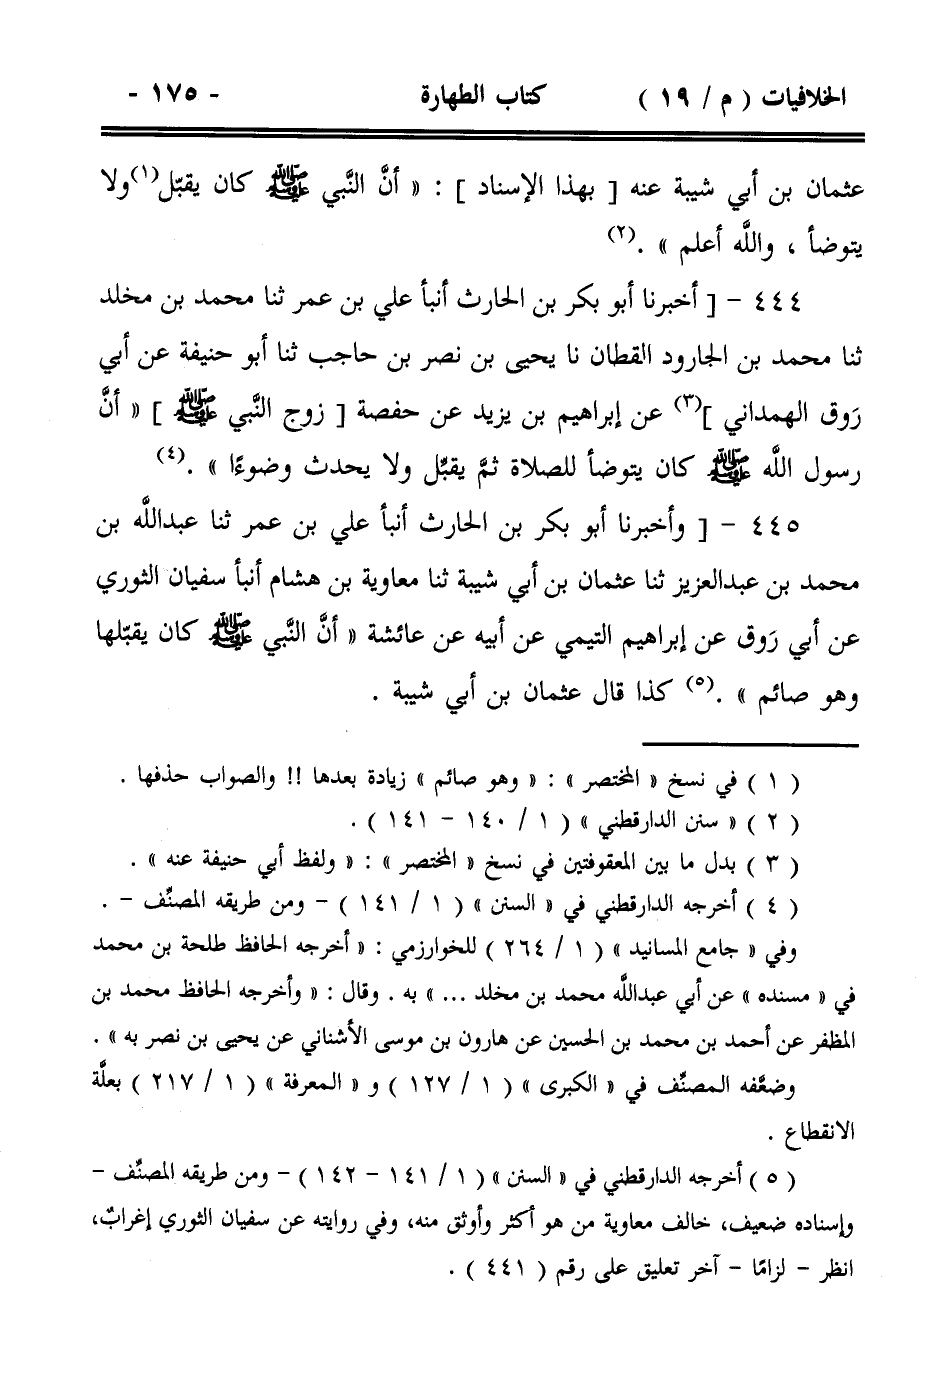 الخلافيات ( م / ١٩ ) كتاب الطهارة - ١٧٥ -
عثمان بن أبي شيبة عنه [ بهذا الإسناد ] : « أنَّ النَّبي ﷺ كان يقبّل(١) ولا
يتوضأ ، واللَّه أعلم » .(٢)
٤٤٤ - [ أخبرنا أبو بكر بن الحارث أنبأ علي بن عمر ثنا محمد بن مخلد
ثنا محمد بن الجارود القطان نا يحيى بن نصر بن حاجب ثنا أبو حنيفة عن أبي
رَوق الهمداني ](٣) عن إبراهيم بن يزيد عن حفصة [ زوج النَّبي ﷺ ] « أنَّ
رسول اللَّه ﷺ كان يتوضأ للصلاة ثمَّ يقبِّل ولا يحدث وضوءًا » .(٤)
٤٤٥ - [ وأخبرنا أبو بكر بن الحارث أنبأ علي بن عمر ثنا عبداللَّه بن
محمد بن عبدالعزيز ثنا عثمان بن أبي شيبة ثنا معاوية بن هشام أنبأ سفيان الثوري
عن أبي رَوق عن إبراهيم التيمي عن أبيه عن عائشة « أنَّ النَّبي ﷺ كان يقبّلها
وهو صائم » .(٥) كذا قال عثمان بن أبي شيبة .
( ١ ) في نسخ « المختصر » : « وهو صائم » زيادة بعدها !! والصواب حذفها .
( ٢ ) « سنن الدارقطني » ( ١ / ١٤٠ - ١٤١ ) .
( ٣ ) بدل ما بين المعقوفتين في نسخ « المختصر » : « ولفظ أبي حنيفة عنه » .
( ٤ ) أخرجه الدارقطني في « السنن » ( ١ / ١٤١ ) - ومن طريقه المصنِّف - .
وفي « جامع المسانيد » ( ١ / ٢٦٤ ) للخوارزمي : « أخرجه الحافظ طلحة بن محمد
في « مسنده » عن أبي عبداللَّه محمد بن مخلد ... » به . وقال : « وأخرجه الحافظ محمد بن
المظفر عن أحمد بن محمد بن الحسين عن هارون بن موسى الأشناني عن يحيى بن نصر به » .
وضعَّفه المصنِّف في « الكبرى » ( ١ / ١٢٧ ) و « المعرفة » ( ١ / ٢١٧ ) بعلَّة
الانقطاع .
( ٥ ) أخرجه الدارقطني في « السنن » ( ١ / ١٤١ - ١٤٢ ) - ومن طريقه المصنِّف -
وإسناده ضعيف، خالف معاوية من هو أكثر وأوثق منه، وفي روايته عن سفيان الثوري إغرابٌ،
انظر - لزامًا - آخر تعليق على رقم ( ٤٤١ ) .